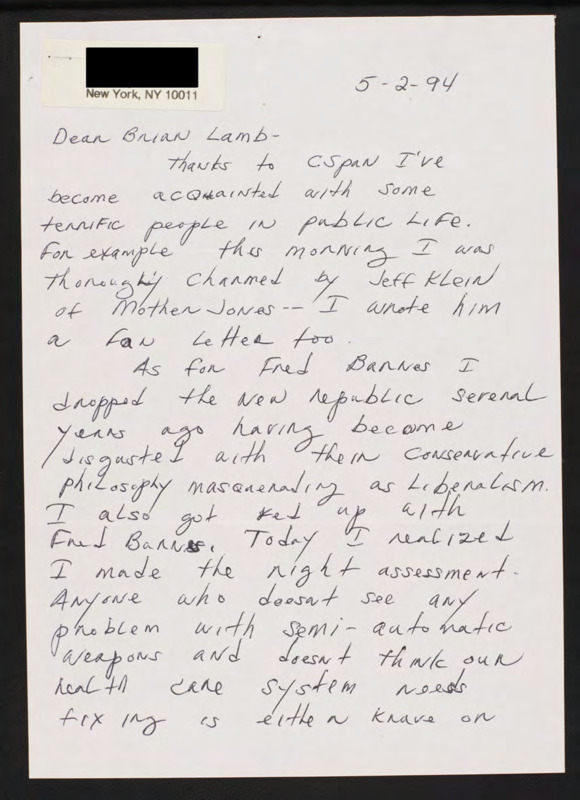 New York, NY 10011
5-2-94
Dear Brian Lamb-
Thanks to CSpan I've
become acquainted with some
terrific people in public life.
For example this morning I was
thoroughly charmed by Jeff Klein
of Mother Jones-- I wrote him
a fan letter too.
As for Fred Barnes I
dropped the New Republic several
years ago having become
disgusted with their conservative
philosophy masquerading as Liberalism.
I also got fed up with
Fred Barnes. Today I realized
I made the right assessment.
Anyone who doesnt see any
problem with semi-automatic
weapons and doesnt think our
health care system needs
fixing is either knave or